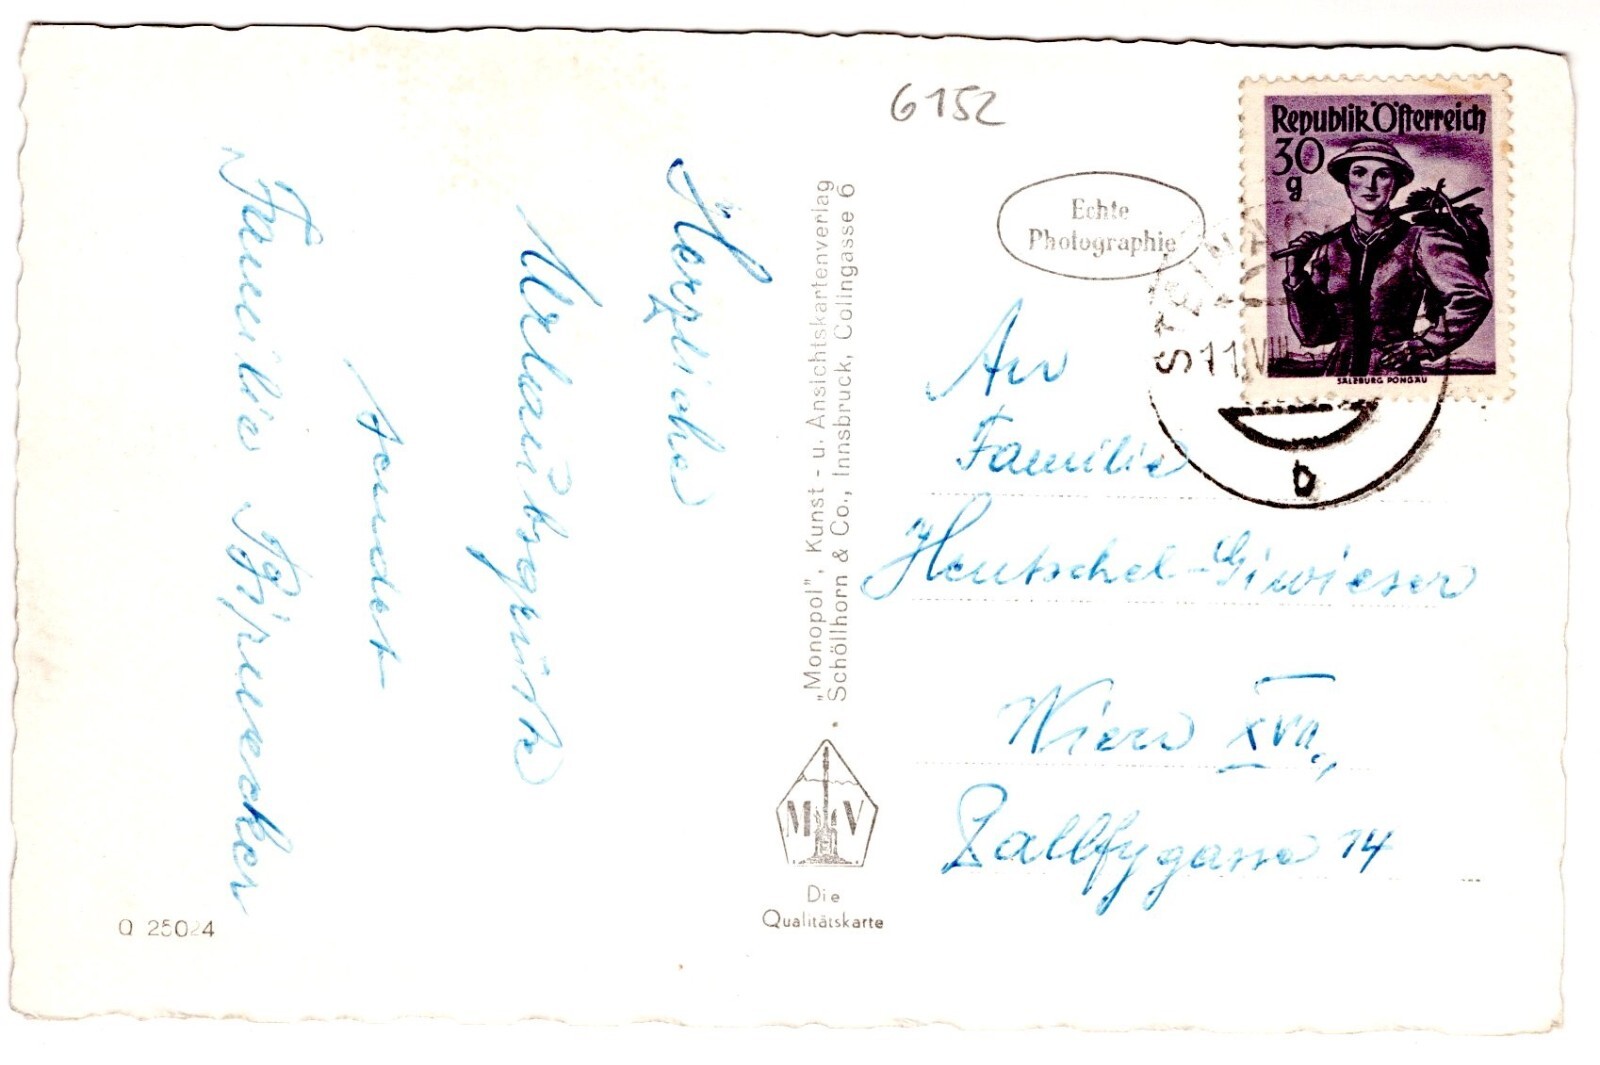 6152
Republik Österreich
30
g
SALZBURG PONGAU
Echte
Photographie
11.VIII
b
Herzliche
Urlaubsgrüße
sendet
Familie
An
Familie
Hentschel-Giwieser
Wien XVII,
Palffygasse 14
„Monopol", Kunst- u. Ansichtskartenverlag
Schöllhorn & Co., Innsbruck, Colingasse 6
M V
Die
Qualitätskarte
Q 25024